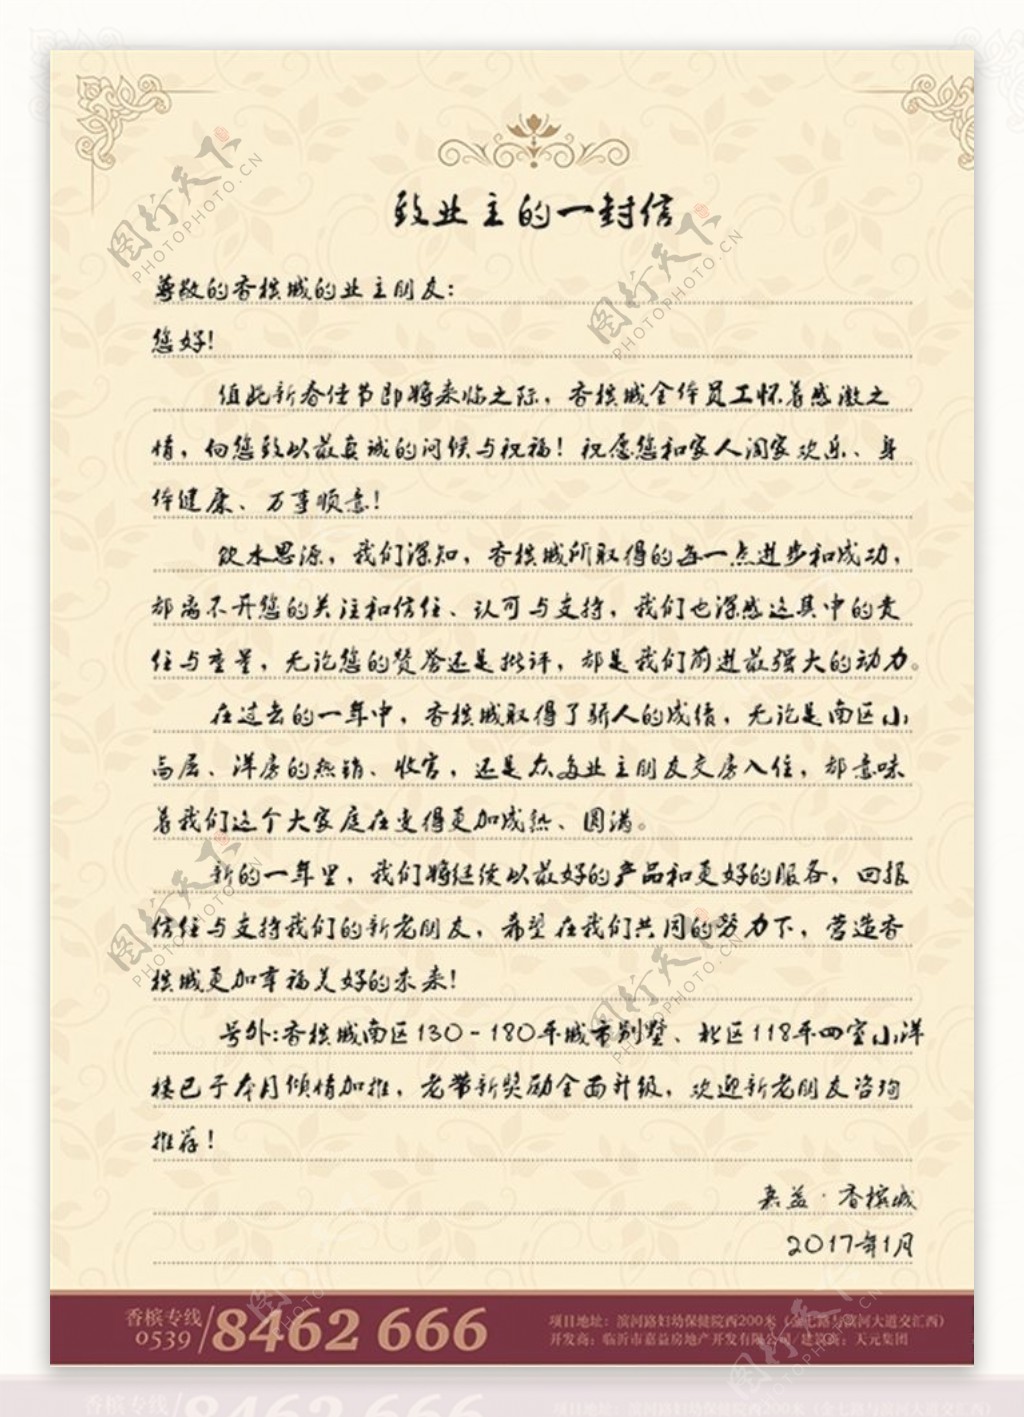 致业主的一封信
尊敬的香槟城的业主朋友：
您好！
值此新春佳节即将来临之际，香槟城全体员工怀着感激之
情，向您致以最真诚的问候与祝福！祝愿您和家人阖家欢乐、身
体健康、万事顺意！
饮水思源，我们深知，香槟城所取得的每一点进步和成功，
都离不开您的关注和信任、认可与支持，我们也深感这其中的责
任与重量，无论您的赞誉还是批评，都是我们前进最强大的动力。
在过去的一年中，香槟城取得了骄人的成绩，无论是南区小
高层、洋房的热销、收官，还是众多业主朋友交房入住，都意味
着我们这个大家庭在变得更加成熟、圆满。
新的一年里，我们将继续以最好的产品和更好的服务，回报
信任与支持我们的新老朋友，希望在我们共同的努力下，营造香
槟城更加幸福美好的未来！
号外：香槟城南区130-180平城市别墅、北区118平四室小洋
楼已于本月倾情加推，老带新奖励全面升级，欢迎新老朋友咨询
推荐！
嘉益·香槟城
2017年1月
香槟专线
0539/8462 666
项目地址：滨河路妇幼保健院西200米（金七路与滨河大道交汇西）
开发商：临沂市嘉益房地产开发有限公司/建筑商：天元集团